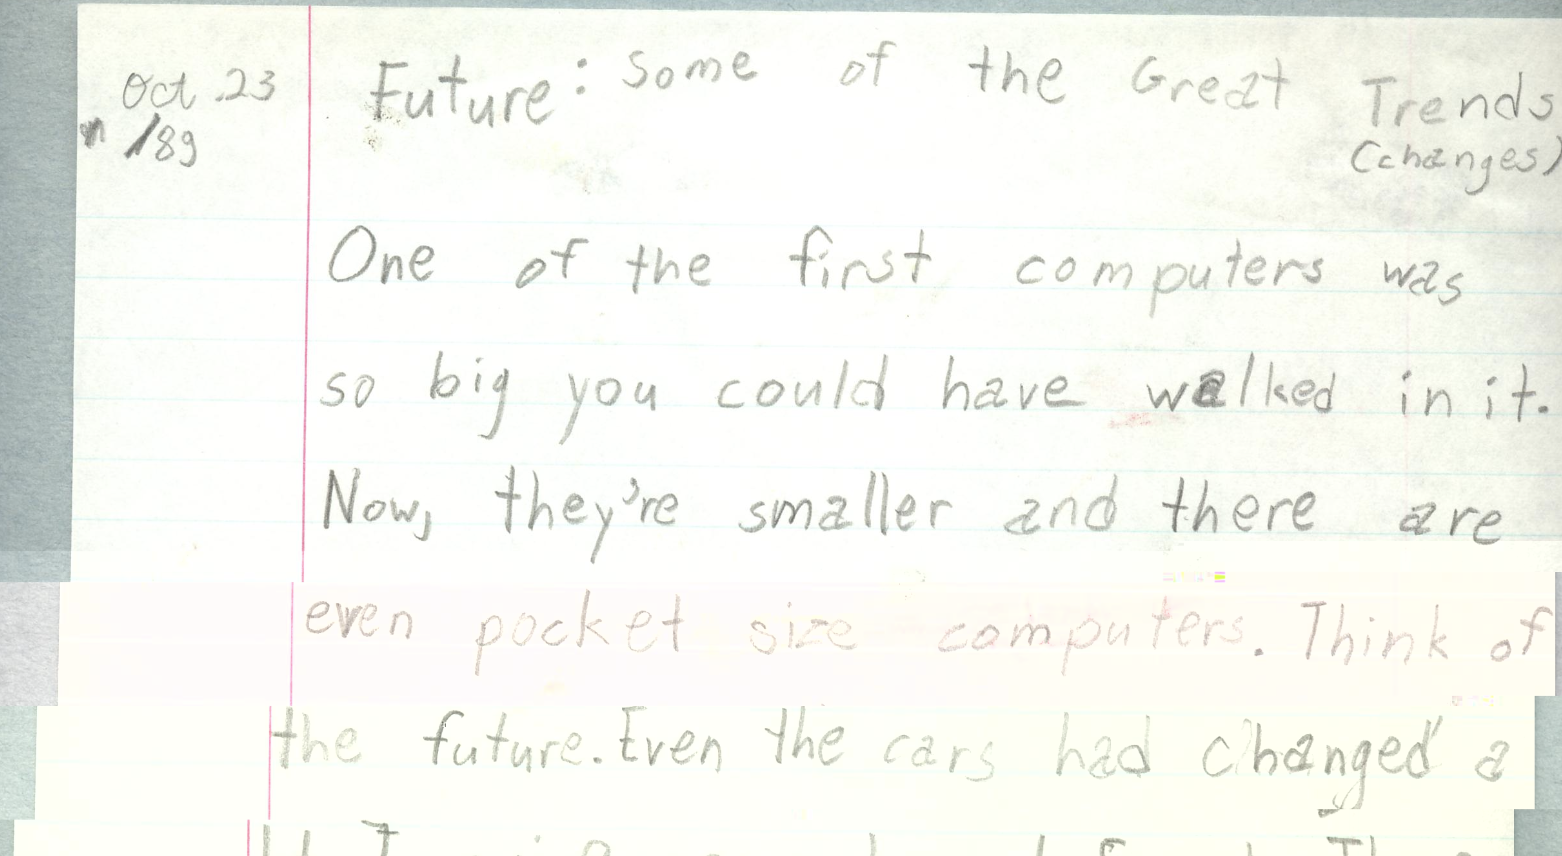 Oct. 23 Future: Some of the Great Trends
/89 (changes)
One of the first computers was
so big you could have walked in it.
Now, they're smaller and there are
even pocket size computers. Think of
the future. Even the cars had changed a